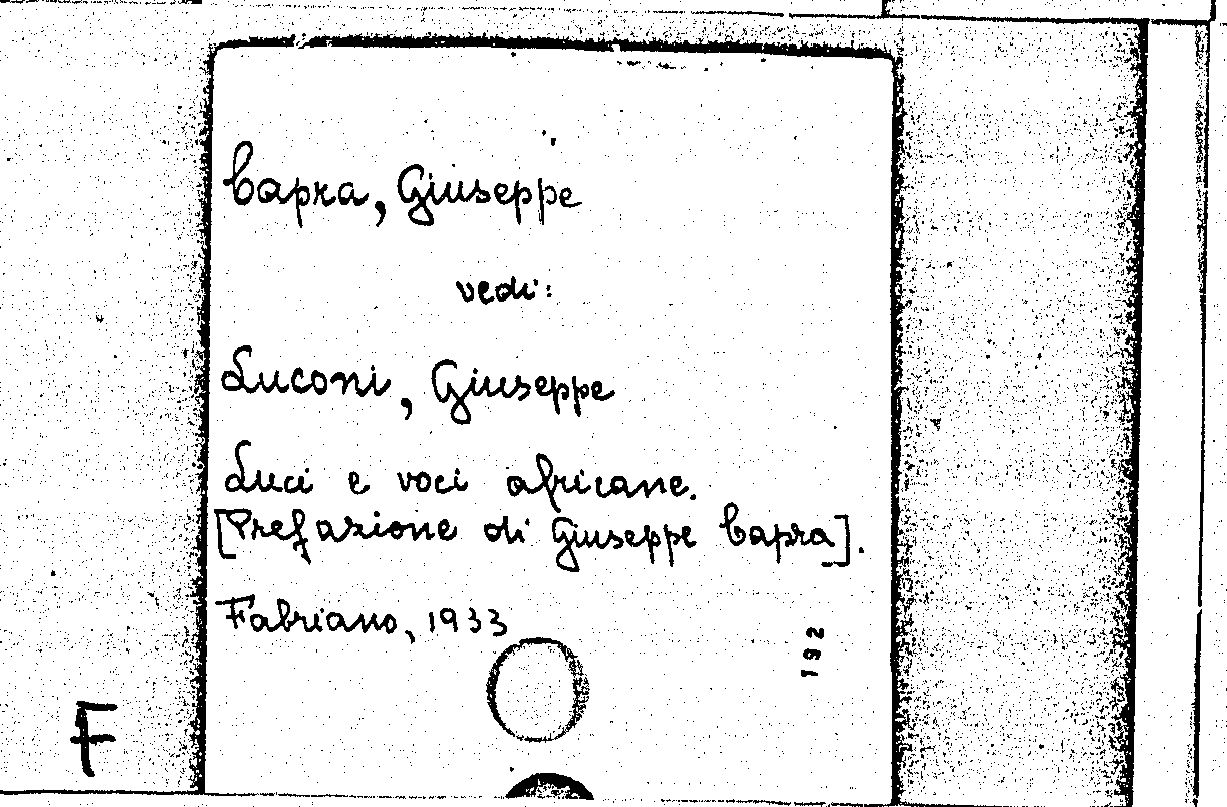 Capra, Giuseppe
vedi:
Luconi, Giuseppe
Luci e voci africane.
[Prefazione di Giuseppe Capra].
Fabriano, 1933
192
F